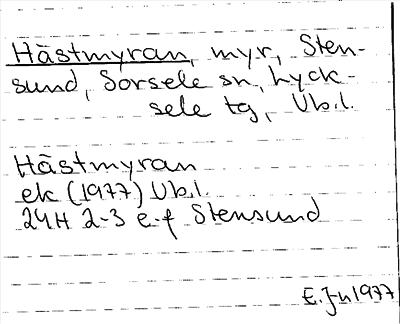 Hästmyran, myr, Sten-
sund, Sorsele sn, Lyck-
sele tg, Vb.l.
Hästmyran
ek (1977) Vb.l.
24H 2-3 e-f Stensund
E. J-n 1977